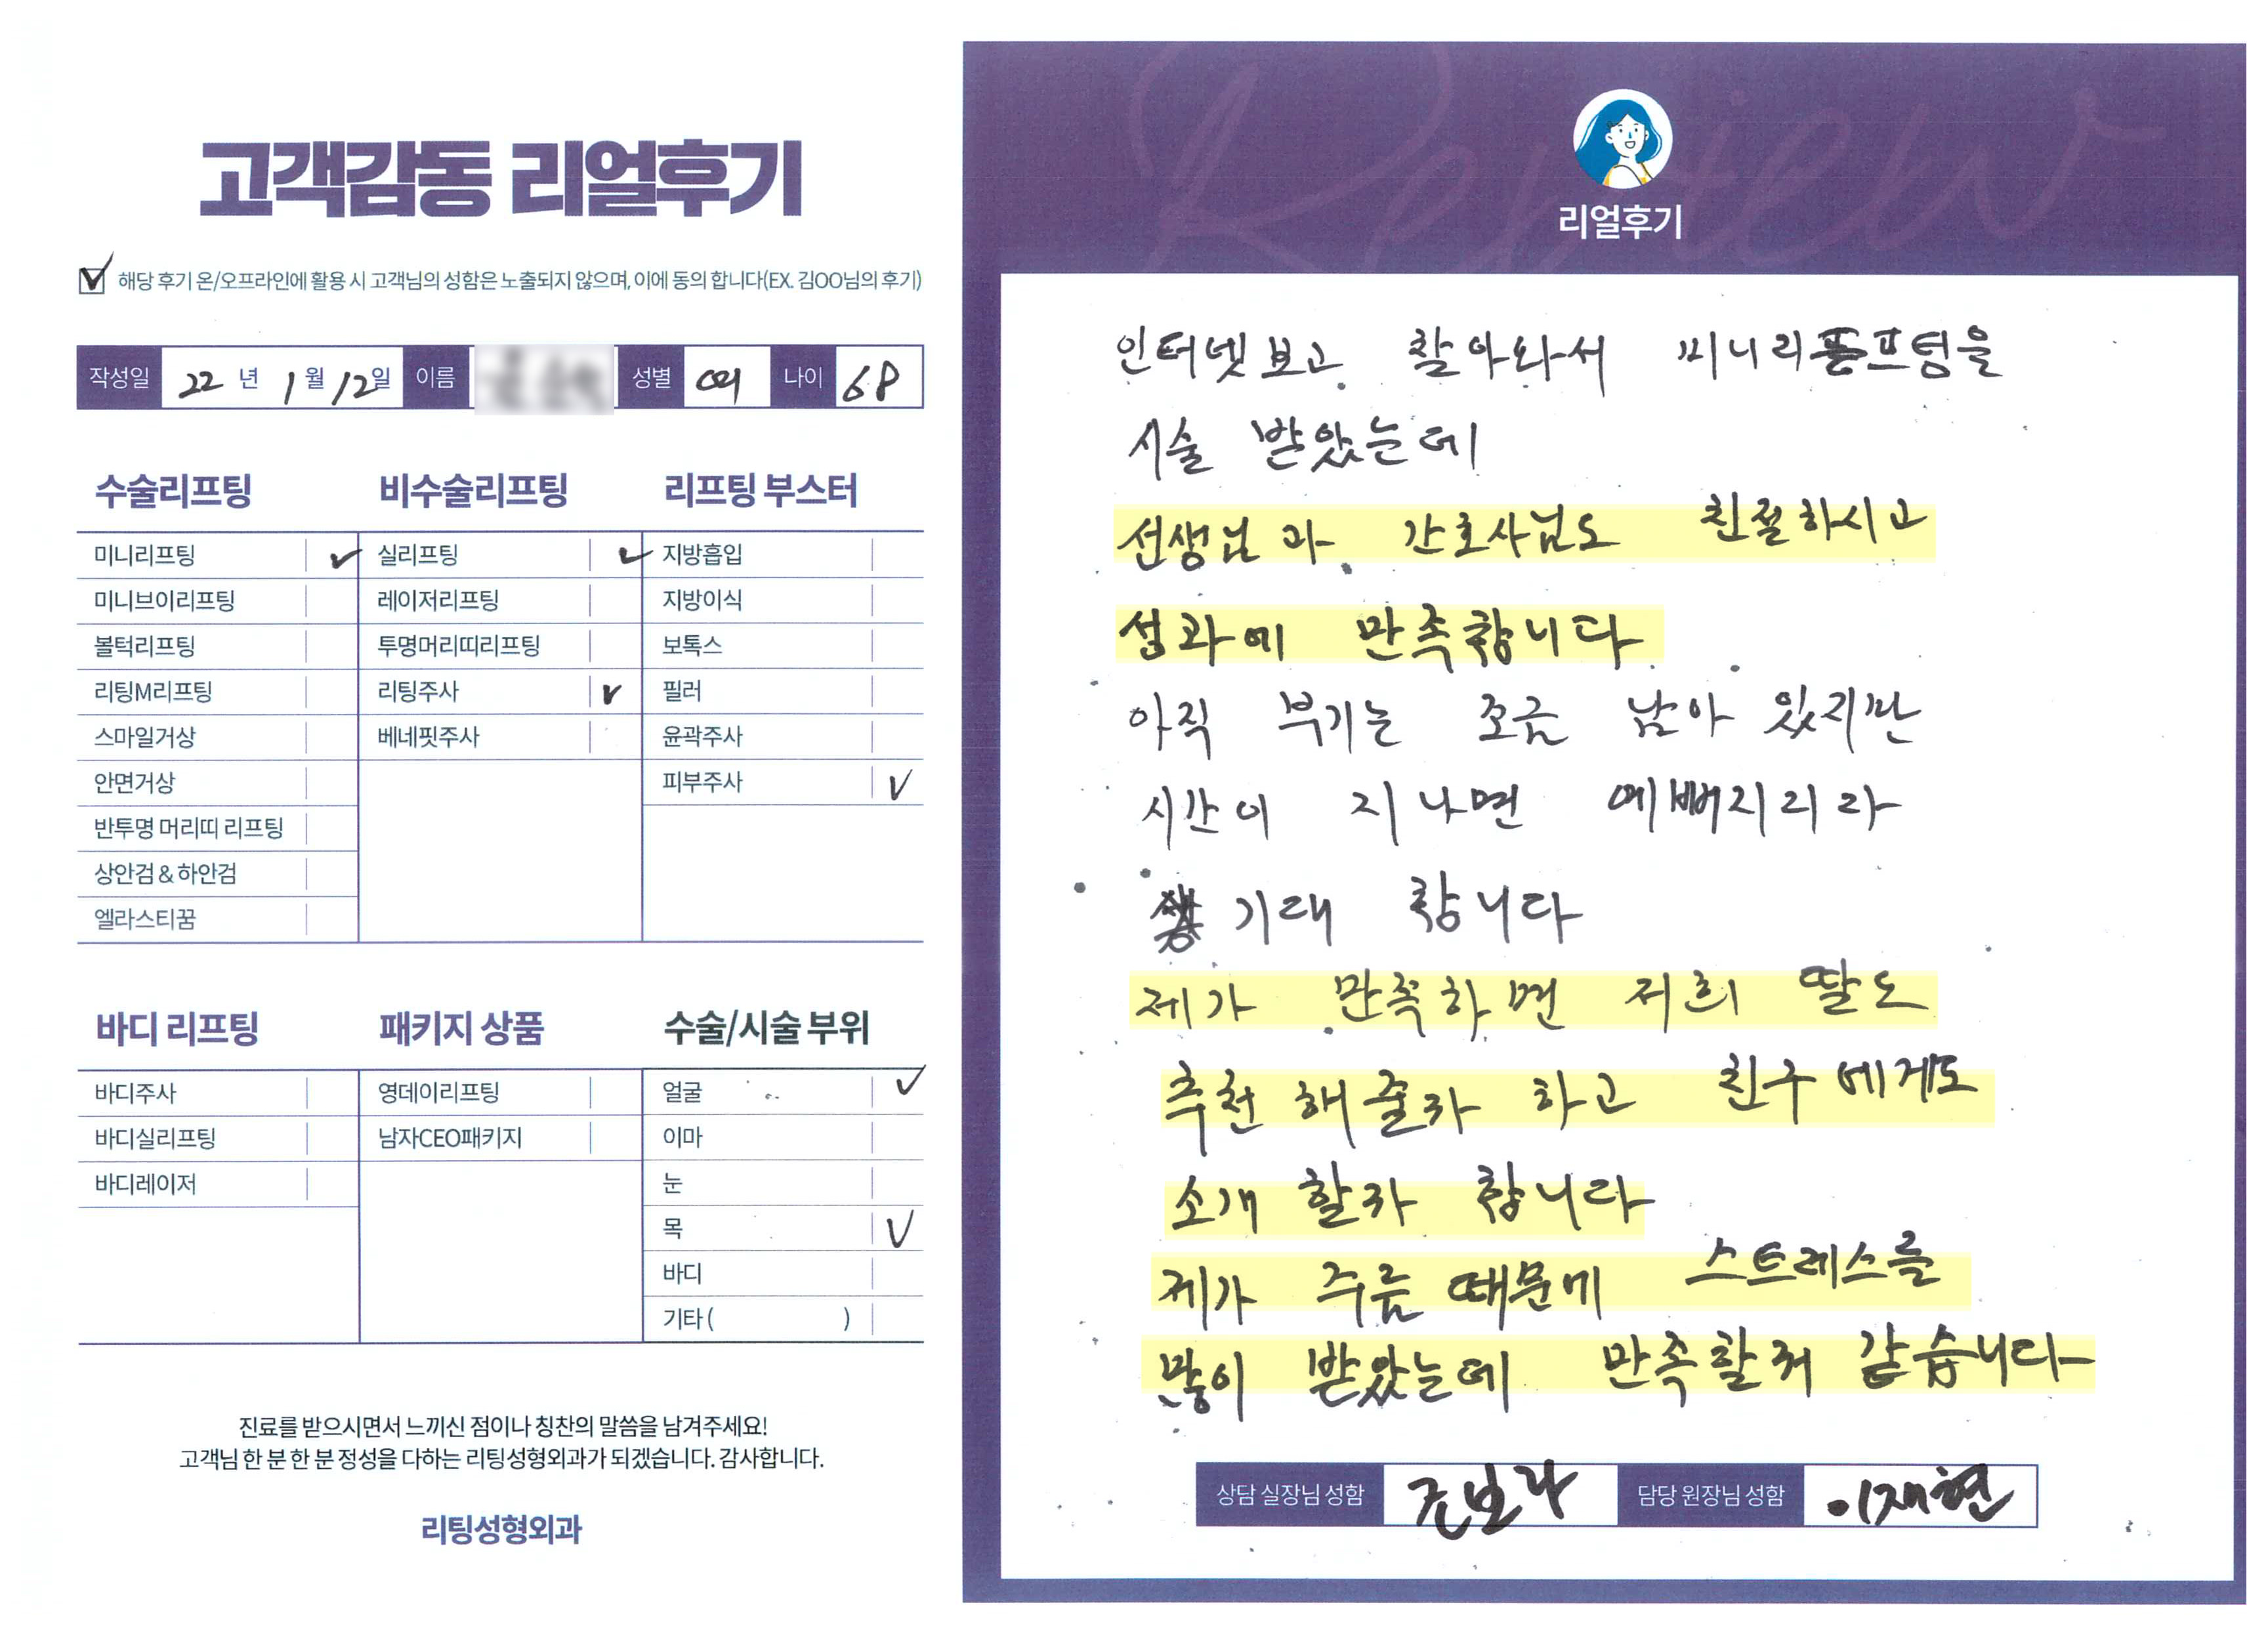 고객감동 리얼후기
해당 후기 온/오프라인에 활용 시 고객님의 성함은 노출되지 않으며, 이에 동의 합니다(EX. 김OO님의 후기)
작성일 22 년 1 월 12 일 이름 성별 여 나이 68
수술리프팅
미니리프팅
미니브이리프팅
볼턱리프팅
리팅M리프팅
스마일거상
안면거상
반투명 머리띠 리프팅
상안검 & 하안검
엘라스티꿈
비수술리프팅
실리프팅
레이저리프팅
투명머리띠리프팅
리팅주사
베네핏주사
리프팅 부스터
지방흡입
지방이식
보톡스
필러
윤곽주사
피부주사
바디 리프팅
바디주사
바디실리프팅
바디레이저
패키지 상품
영데이리프팅
남자CEO패키지
수술/시술 부위
얼굴
이마
눈
목
바디
기타 ( )
진료를 받으시면서 느끼신 점이나 칭찬의 말씀을 남겨주세요!
고객님 한 분 한 분 정성을 다하는 리팅성형외과가 되겠습니다. 감사합니다.
리팅성형외과
Review
리얼후기
인터넷 보고 찾아와서 미니리프팅을
시술 받았는데
선생님과 간호사님도 친절하시고
성과에 만족합니다
아직 부기는 조금 남아 있지만
시간이 지나면 예뻐지리라
기대 합니다
제가 만족하면 저희 딸도
추천 해줄라 하고 친구에게도
소개 할라 합니다
제가 주름 때문에 스트레스를
많이 받았는데 만족할꺼 같습니다
상담 실장님 성함 조보라 담당 원장님 성함 이재현